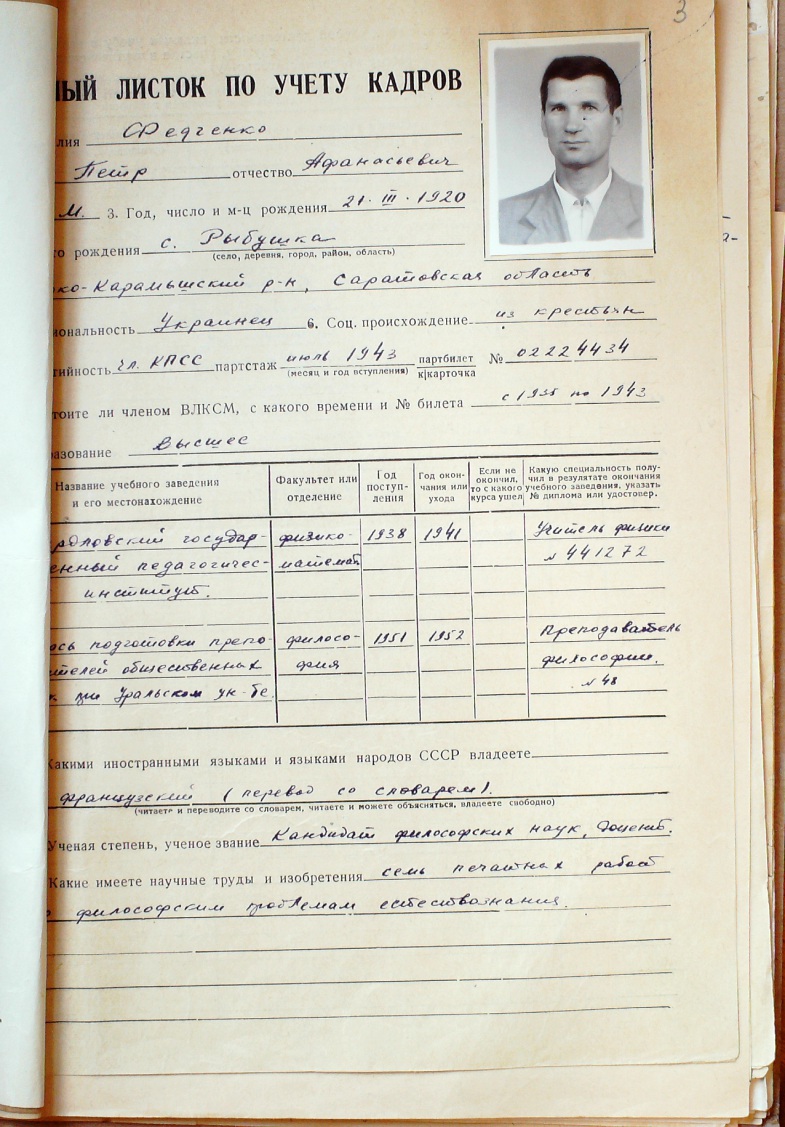 3
ЫЙ ЛИСТОК ПО УЧЕТУ КАДРОВ
лия Федченко
Петр отчество Афанасьевич
М. 3. Год, число и м-ц рождения 21. III. 1920
о рождения с. Рыбушка
(село, деревня, город, район, область)
ко-Карамышский р-н, Саратовская область
ональность Украинец 6. Соц. происхождение из крестьян
тийность чл. КПСС партстаж июль 1943 партбилет № 02224434
(месяц и год вступления) к|карточка
тоите ли членом ВЛКСМ, с какого времени и № билета с 1935 по 1943
разование высшее
Название учебного заведения и его местонахождение Факультет или отделение Год поступ-ления Год окон-чания или ухода Если не окончил, то с какого курса ушел Какую специальность полу-чил в результате окончания учебного заведения, указать № диплома или удостовер.
рдловский государ- физико- 1938 1941 Учитель физики
енный педагогичес- математ № 441272
институт.
ась подготовки препо- филосо- 1951 1952 Преподаватель
ителей общественных фия философии.
к при Уральском ун-те. № 48
Какими иностранными языками и языками народов СССР владеете
французский (перевод со словарем).
(читаете и переводите со словарем, читаете и можете объясняться, владеете свободно)
Ученая степень, ученое звание Кандидат философских наук, доцент.
Какие имеете научные труды и изобретения семь печатных работ
по философским проблемам естествознания.